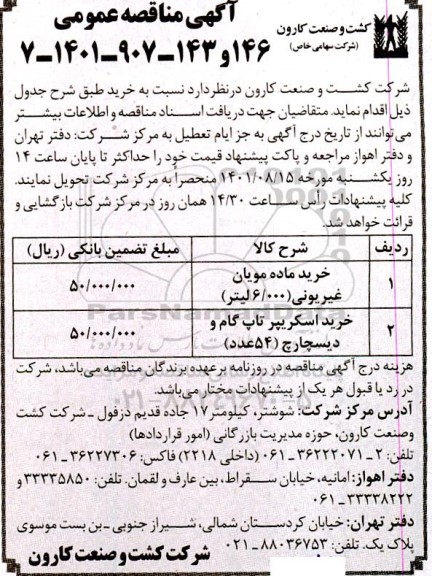 آگهی مناقصه عمومی
۱۴۶ و ۱۴۳-۹۰۷-۱۴۰۱-۷
کشت و صنعت کارون
(شرکت سهامی خاص)
شرکت کشت و صنعت کارون درنظردارد نسبت به خرید طبق شرح جدول
ذیل اقدام نماید. متقاضیان جهت دریافت اسناد مناقصه و اطلاعات بیشتر
می‌توانند از تاریخ درج آگهی به جز ایام تعطیل به مرکز شرکت: دفتر تهران
و دفتر اهواز مراجعه و پاکت پیشنهاد قیمت خود را حداکثر تا پایان ساعت ۱۴
روز یکشنبه مورخه ۱۴۰۱/۰۸/۱۵ منحصراً به مرکز شرکت تحویل نمایند.
کلیه پیشنهادات رأس ساعت ۱۴/۳۰ همان روز در مرکز شرکت بازگشایی و
قرائت خواهد شد.
ردیف شرح کالا مبلغ تضمین بانکی (ریال)
۱ خرید ماده مویان غیریونی(۶/۰۰۰ لیتر) ۵۰/۰۰۰/۰۰۰
۲ خرید اسکریپر تاپ گام و دیسچارج (۵۴عدد) ۵۰/۰۰۰/۰۰۰
ParsNamadData
هزینه درج آگهی مناقصه در روزنامه برعهده برندگان مناقصه می‌باشد، شرکت
در رد یا قبول هر یک از پیشنهادات مختار می‌باشد.
آدرس مرکز شرکت: شوشتر، کیلومتر۱۷ جاده قدیم دزفول - شرکت کشت
وصنعت کارون، حوزه مدیریت بازرگانی (امور قراردادها)
تلفن: ۲-۳۶۲۲۲۰۷۱-۰۶۱ (داخلی ۲۲۱۸) فاکس: ۳۶۲۲۷۳۰۶-۰۶۱
دفتر اهواز: امانیه، خیابان سقراط، بین عارف و لقمان. تلفن: ۳۳۳۳۵۸۵۰ و
۳۳۳۳۸۲۲۲-۰۶۱
دفتر تهران: خیابان کردستان شمالی، شیراز جنوبی -بن بست موسوی
پلاک یک. تلفن: ۸۸۰۳۶۷۵۳-۰۲۱
شرکت کشت و صنعت کارون